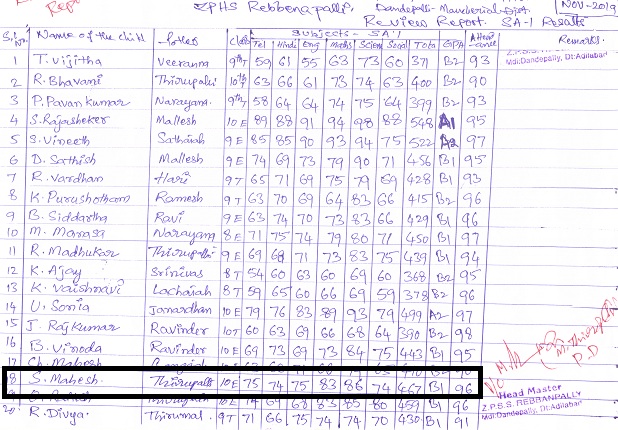 ZPHS Rebbenapalli, Dandepally - Mancherial - Dist. NOV-2019
Review Report. SA-1 Results
Subjects - SA-1
S.No Name of the child Father Class Tel Hindi Eng maths Scien Social Total GPA Attendance Remarks.
Z.P.S.S. REBBANPALLY
Mdl:Dandepally, Dt:Adilabad
1 T. Vijitha Veeranna 9thT 59 61 55 63 73 60 371 B2 93
2 R. Bhavani Thirupathi 10thT 63 66 61 73 74 63 400 B2 90
3 P. Pavan kumar Narayana. 9thT 58 64 64 74 75 64 399 B2 93
4 S. Rajasheker Mallesh 10E 89 88 91 94 98 88 548 A1 95
5 S. Vineeth Sathaiah 9E 85 85 90 93 94 75 522 A2 97
6 D. Sathish Mallesh 9E 74 69 73 79 90 71 456 B1 95
7 R. Vardhan Hari 9T 65 71 69 75 79 69 428 B1 93
8 K. Purushotham Ramesh 9T 63 70 69 64 83 66 415 B2 96
9 B. Siddartha Ravi 9E 63 74 70 73 83 66 429 B1 96
10 M. Manasa Narayana 8E 71 75 74 79 80 71 450 B1 97
11 R. Madhukar Thirupathi 9E 69 68 71 73 83 75 439 B1 94
12 K. Ajay Srinivas 8T 54 60 63 60 69 60 368 B2 95
13 K. Vaishnavi Lachaiah 8T 59 65 60 66 69 59 378 B2 96
14 U. Sonia Janardhan 10E 79 76 83 89 93 79 499 A2 97
15 J. Rajkumar Ravinder 10T 60 63 69 66 68 64 390 B2 98
16 B. Vinoda Ravinder 10E 69 73 69 73 84 75 443 B1 95
17 Ch. Mahesh
18 S. Mahesh. Thirupathi 10E 75 74 75 83 86 74 467 B1 96
74 69 68 83 85 80 459 B1 96
20 R. Divya. Thirumal. 9T 71 66 75 74 74 70 430 B1 91
P.D
Head Master
Z.P.S.S. REBBANPALLY
Mdl:Dandepally, Dt:Adilabad